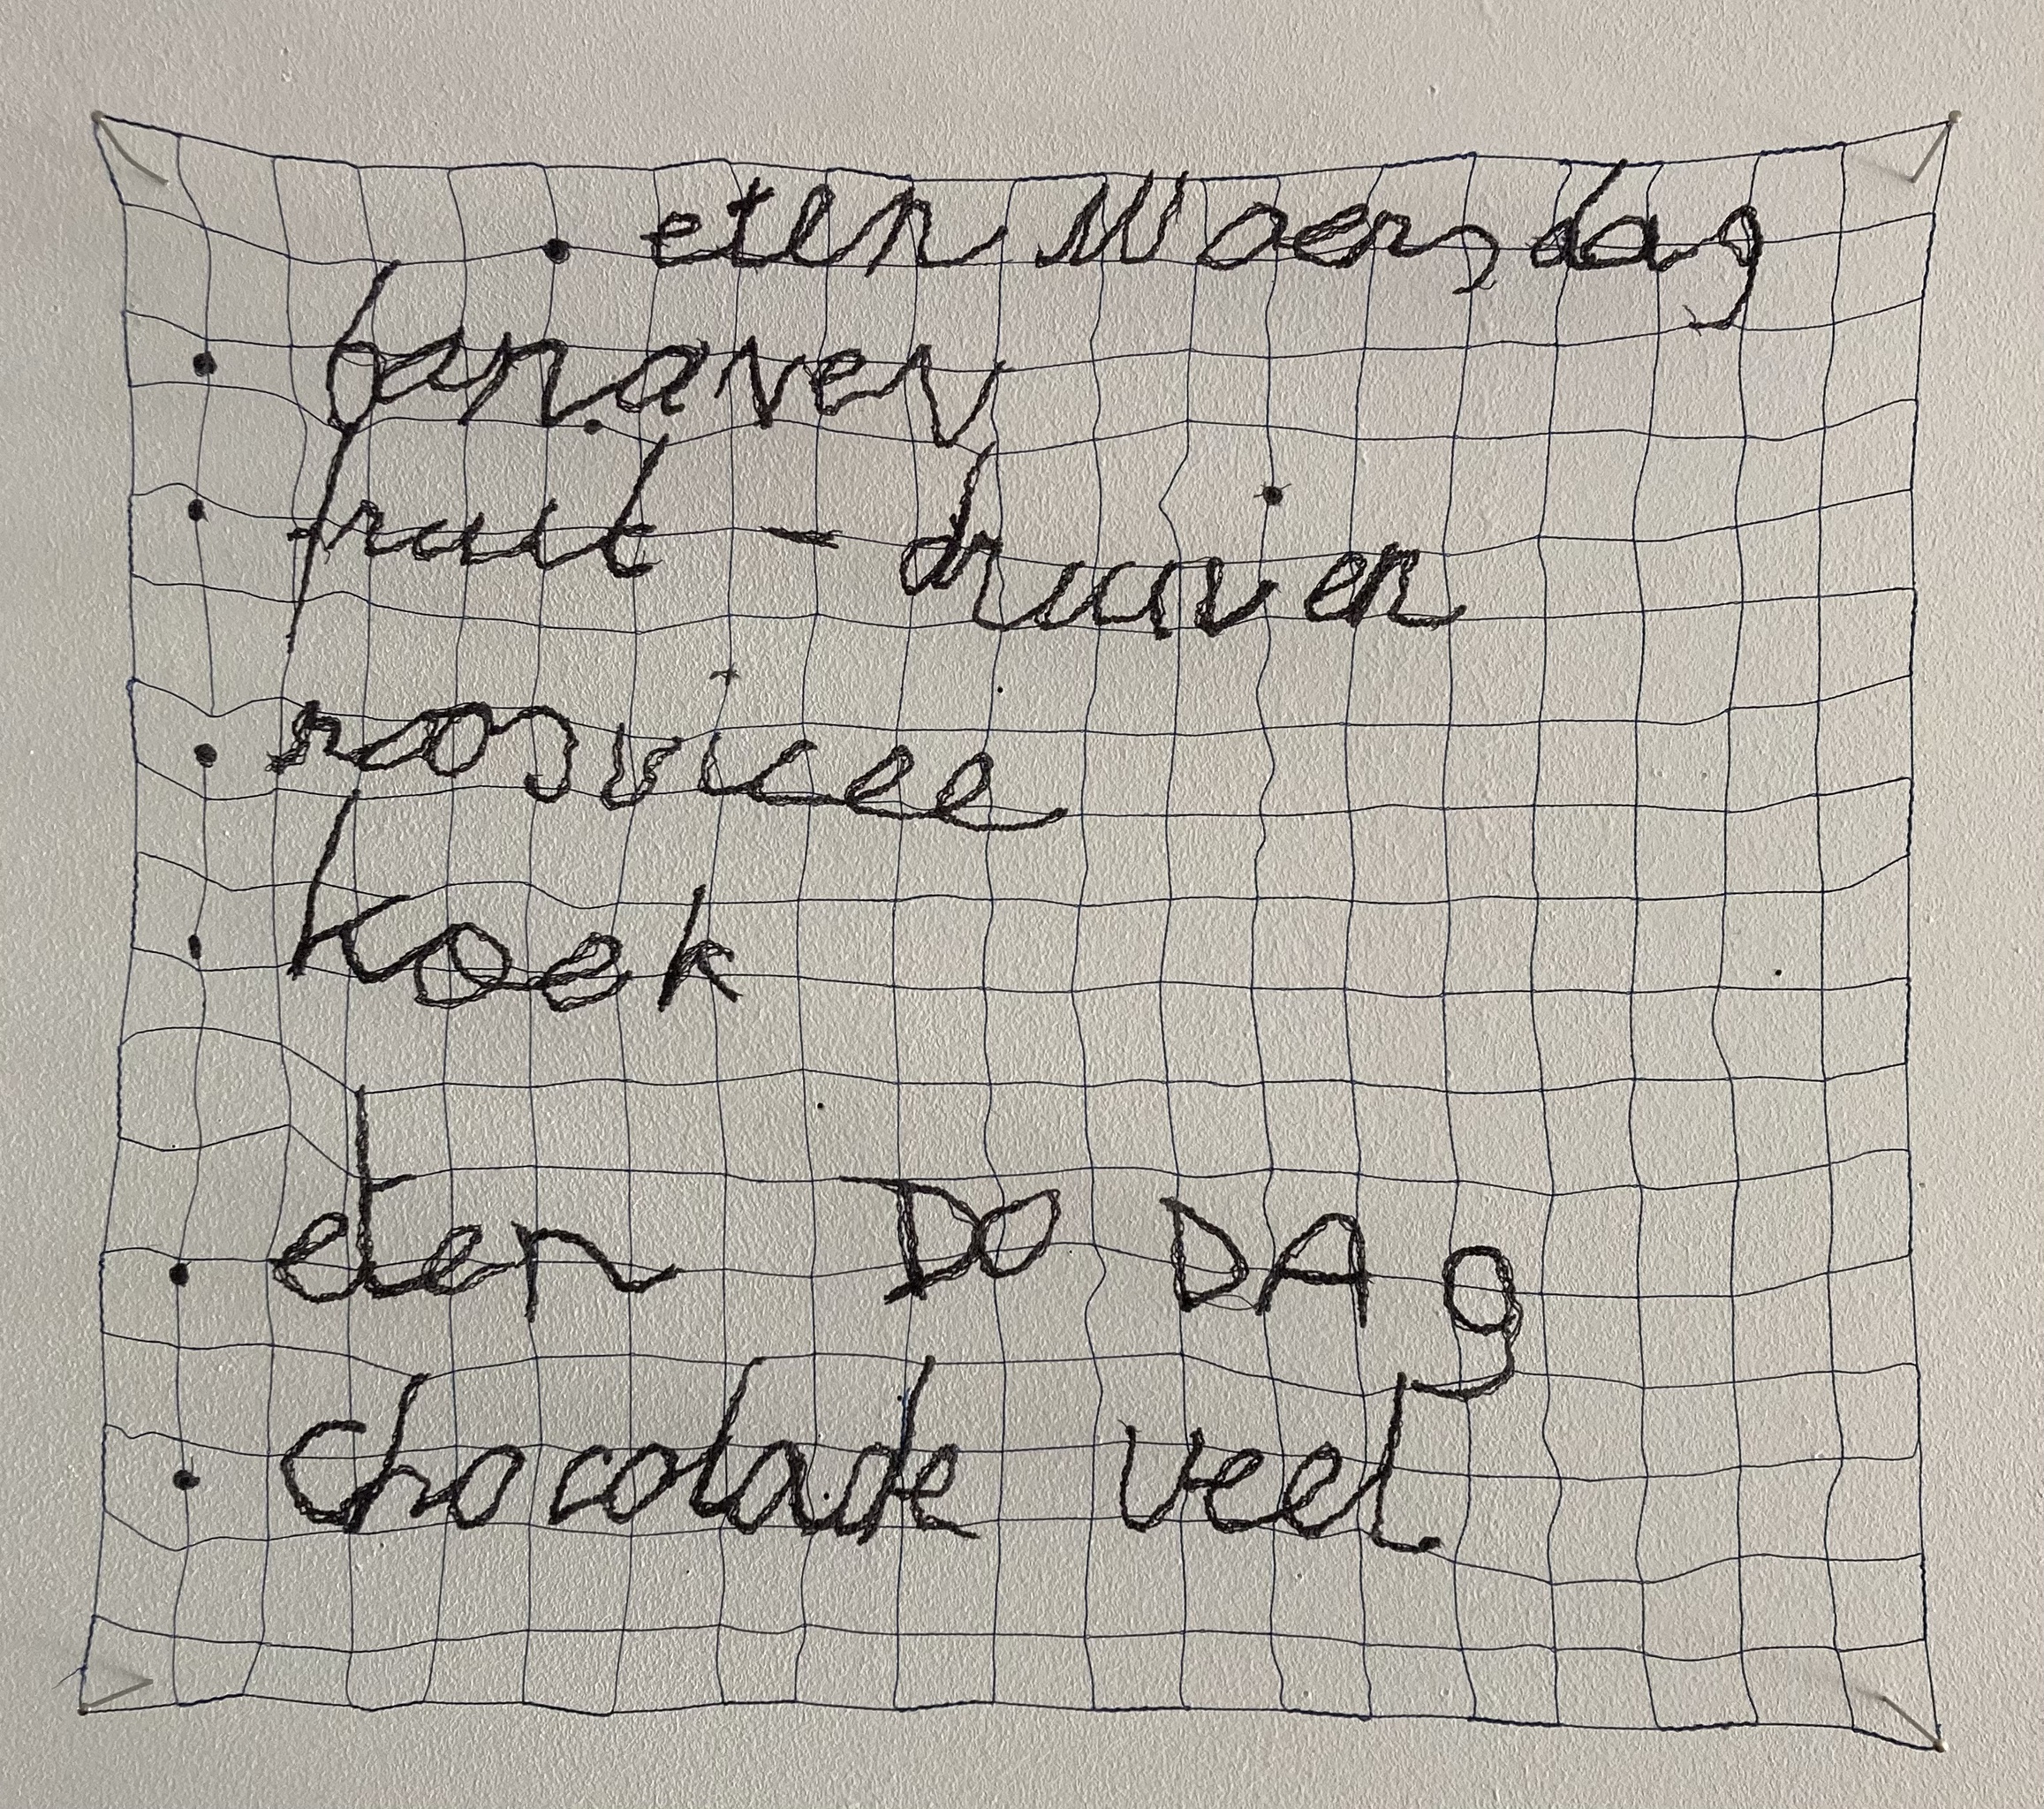 • eten Woensdag
• bananen
• fruit - druiven
• roosvicee
• koek
• eten DO DAg
• chocolade veel